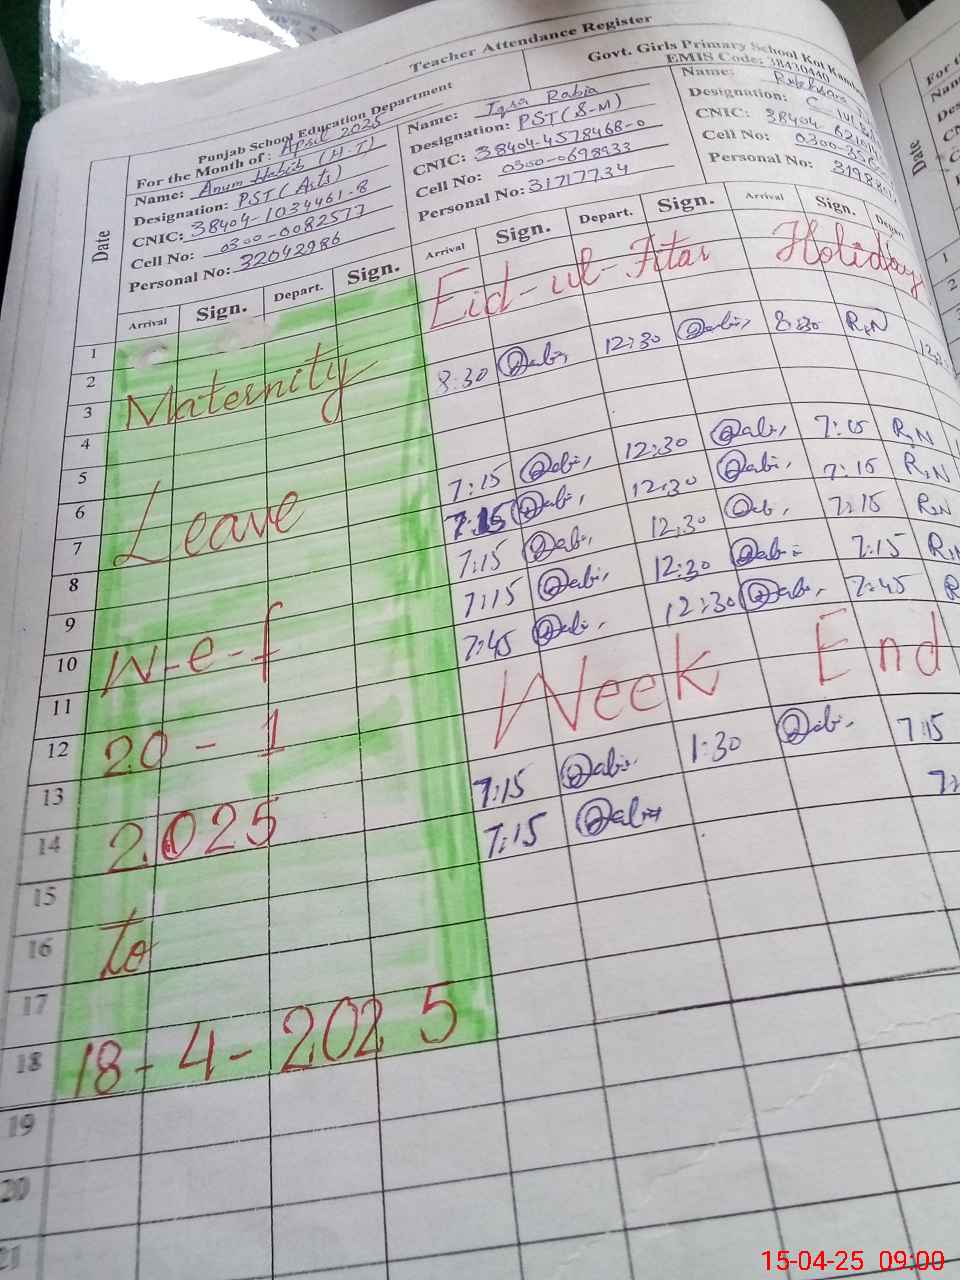 Teacher Attendance Register
Punjab School Education Department
Govt. Girls Primary School Kot
EMIS Code: 38430440
For the Month of: April 2025
Name: Anum Habib (H-T)
Designation: PST (Arts)
CNIC: 38404-1034461-8
Cell No: 0300-0082577
Personal No: 32042986
Name: Iqra Rabia
Designation: PST (S-M)
CNIC: 38404-4578468-0
Cell No: 0300-0698933
Personal No: 31717734
Name:
Designation:
CNIC: 38404
Cell No: 0300
Personal No:
Date
Arrival Sign. Depart. Sign. Arrival Sign. Depart. Sign. Arrival Sign. Depart.
Date
1 Eid-ul-Fitar Holiday
2
3 Maternity 8:30 Rabi 12:30 Rabi 8:30 R,N
4
5
6 Leave 7:15 Rabi, 12:30 Rabi, 7:15 R,N
7 7:15 Rabi, 12:30 Rabi, 7:15 R,N
8 7:15 Rabi, 12:30 7:15 R,N
9 7:15 Rabi, 12:30 Rabi 7:15
10 w-e-f 7:45 Rabi, 12:30 Rabi, 7:45
11 Week End
12 20-1
13 7:15 Rabi 1:30 Rabi 7:15
14 2025 7:15 Rabi
15
16 to
17
18 18-4-2025
19
20
21
15-04-25 09:00